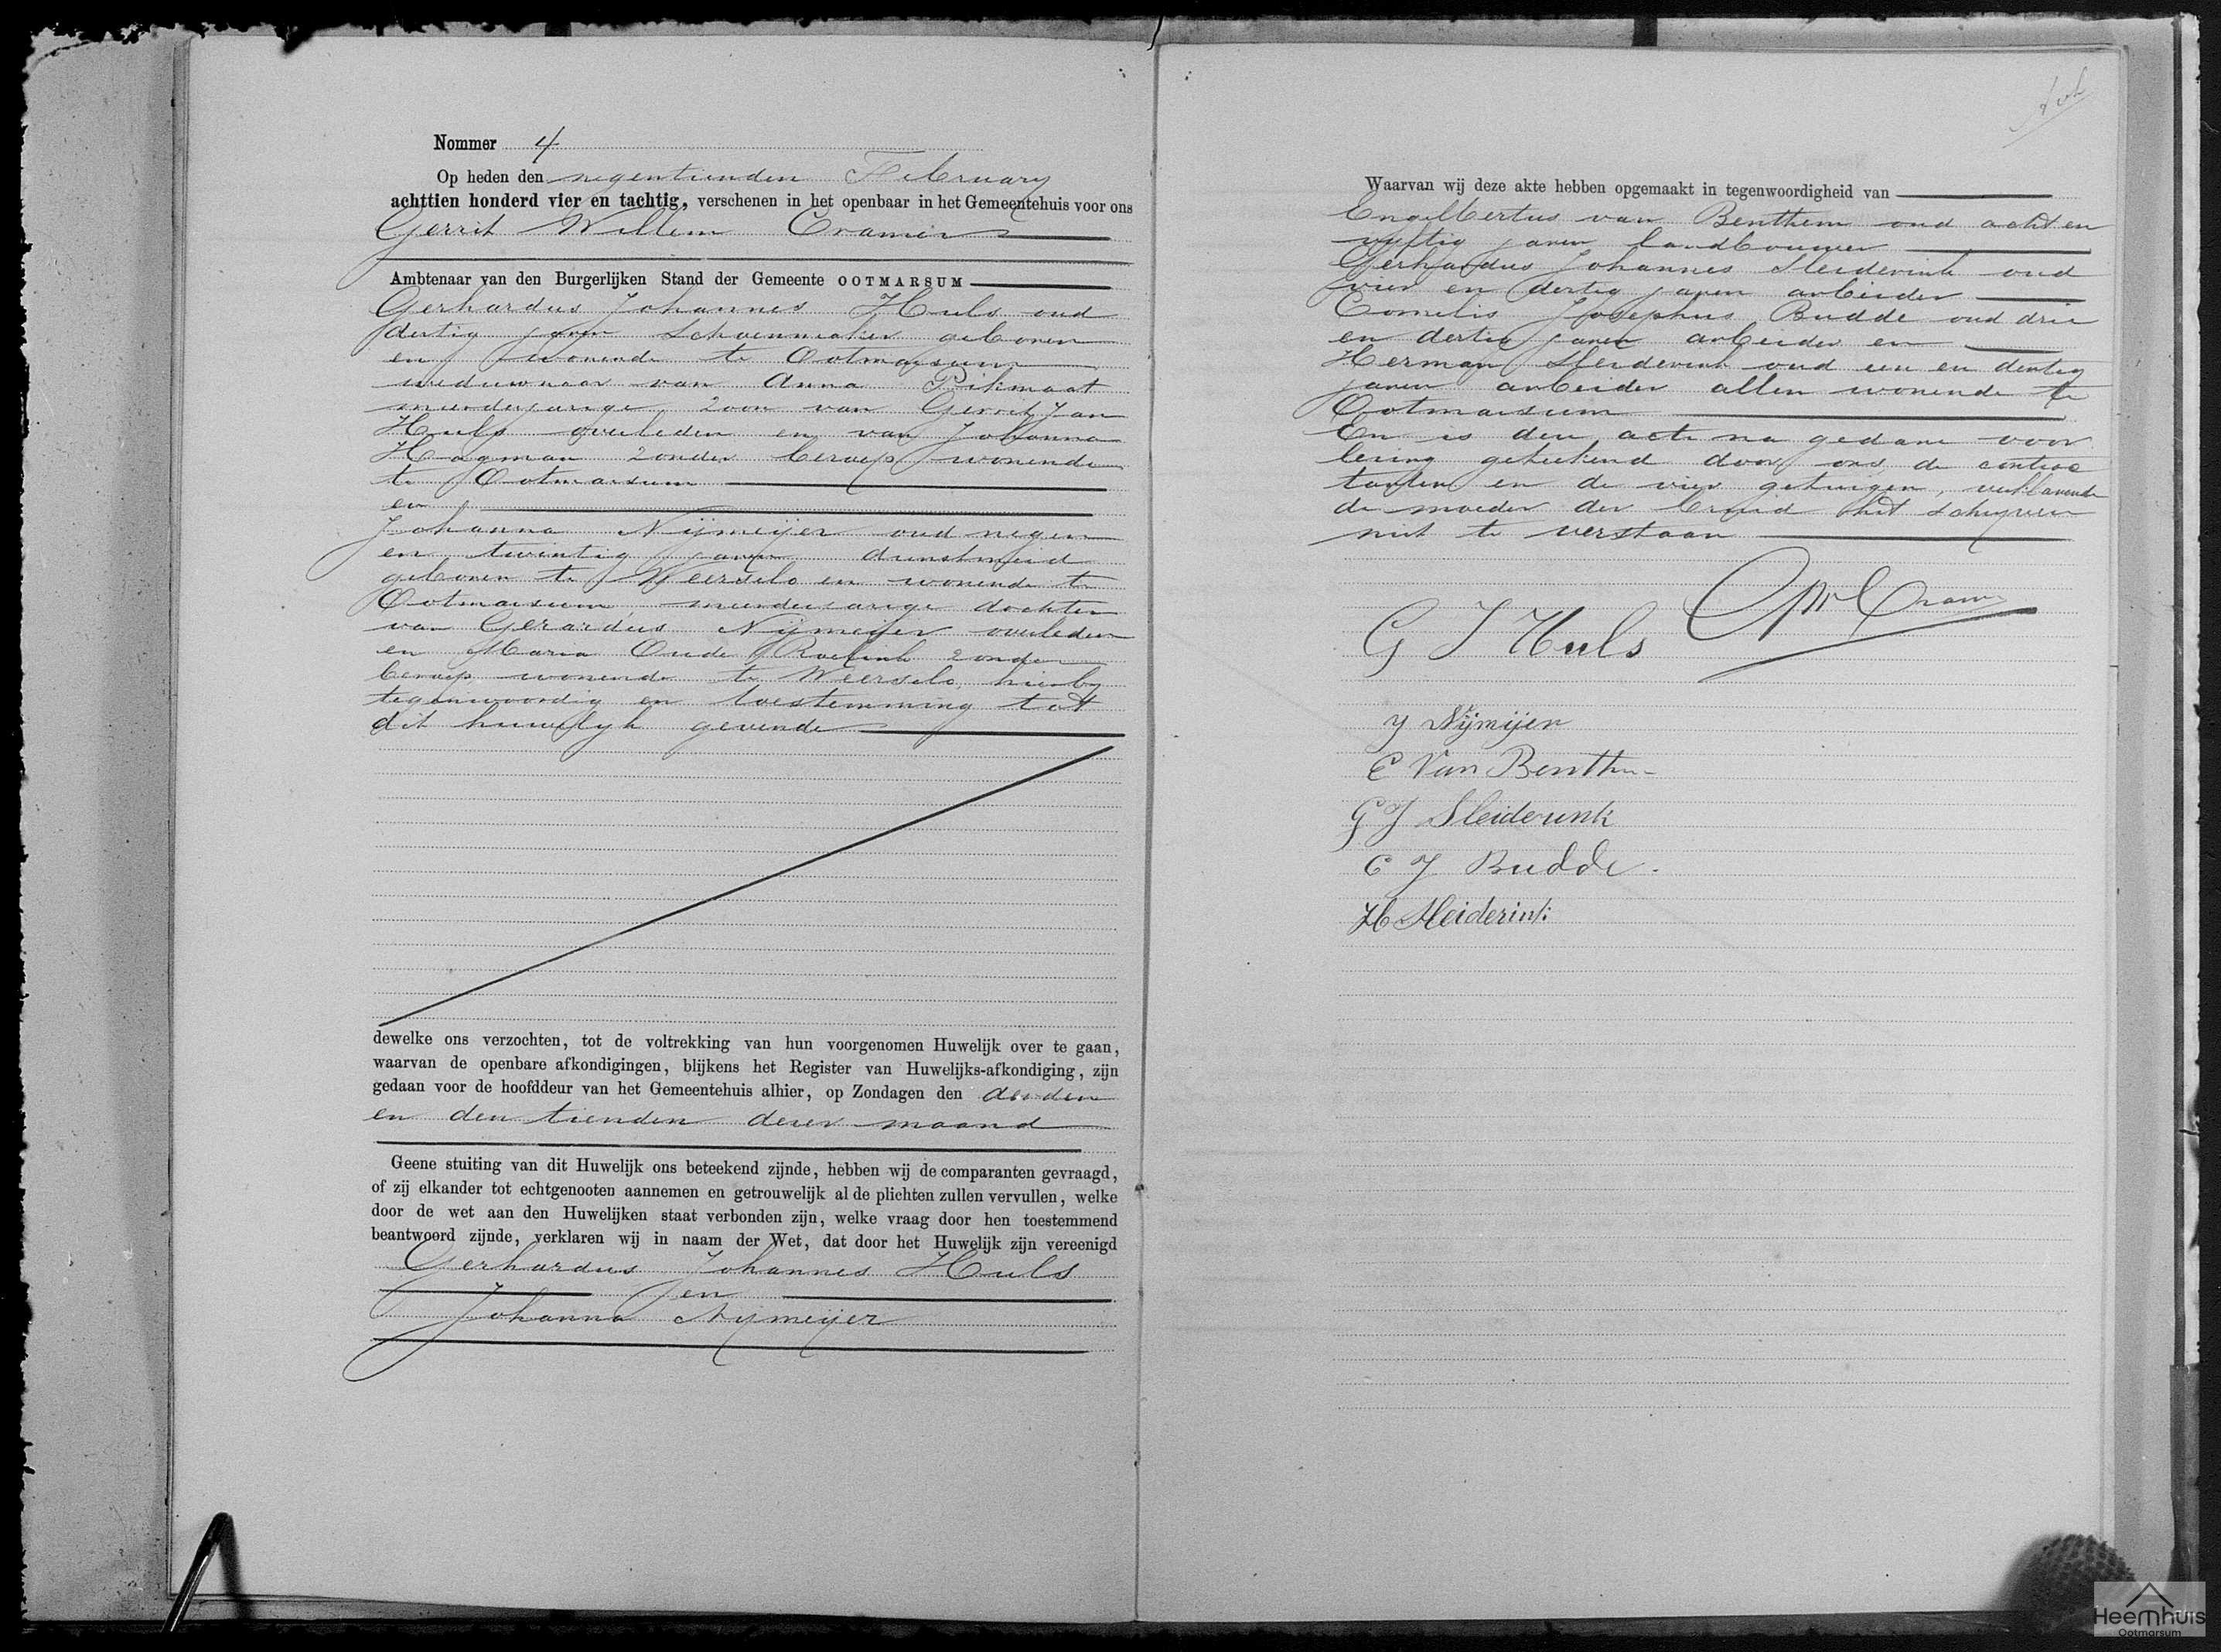 Nommer 4
Op heden den negentienden February
achttien honderd vier en tachtig, verschenen in het openbaar in het Gemeentehuis voor ons
Gerrit Willem Cramer
Ambtenaar van den Burgerlijken Stand der Gemeente OOTMARSUM
Gerhardus Johannes Huls oud
dertig jaren Schoenmaker geboren
en wonende te Ootmarsum
weduwnaar van Anna Pikmaat
meerderjarige zoon van Gerrit Jan
Huls overleden en van Johanna
Hagman zonder beroep wonende
te Ootmarsum
en
Johanna Nijmeijer oud negen
en twintig jaren dienstmeid
geboren te Weerselo en wonende te
Ootmarsum, meerderjarige dochter
van Gerardus Nijmeijer overleden
en Maria Oude Roelink zonder
beroep wonende te Weerselo, hierby
tegenwoordig en toestemming tot
dit huwelyk gevende
dewelke ons verzochten, tot de voltrekking van hun voorgenomen Huwelijk over te gaan,
waarvan de openbare afkondigingen, blijkens het Register van Huwelijks-afkondiging, zijn
gedaan voor de hoofddeur van het Gemeentehuis alhier, op Zondagen den derden
en den tienden dezer maand
Geene stuiting van dit Huwelijk ons beteekend zijnde, hebben wij de comparanten gevraagd,
of zij elkander tot echtgenooten aannemen en getrouwelijk al de plichten zullen vervullen, welke
door de wet aan den Huwelijken staat verbonden zijn, welke vraag door hen toestemmend
beantwoord zijnde, verklaren wij in naam der Wet, dat door het Huwelijk zijn vereenigd
Gerhardus Johannes Huls
en
Johanna Nymeijer
Waarvan wij deze akte hebben opgemaakt in tegenwoordigheid van
Engelbertus van Benthem oud acht en
vyftig jaren landbouwer
Gerhardus Johannes Sleiderink oud
vier en dertig jaren arbeider
Cornelis Josephus Budde oud drie
en dertig jaren arbeider en
Herman Sleiderink oud een en dertig
jaren arbeider allen wonende te
Ootmarsum
En is deze acte na gedane voor
lezing geteekend door ons, de contrac
tanten en de vier getuigen, verklarende
de moeder der bruid het schryven
niet te verstaan
GW Cramer
G J Huls
J Nijmijer
E Van Benthem
G J Sleiderink
C J Budde.
H Sleiderink
Heemhuis
Ootmarsum